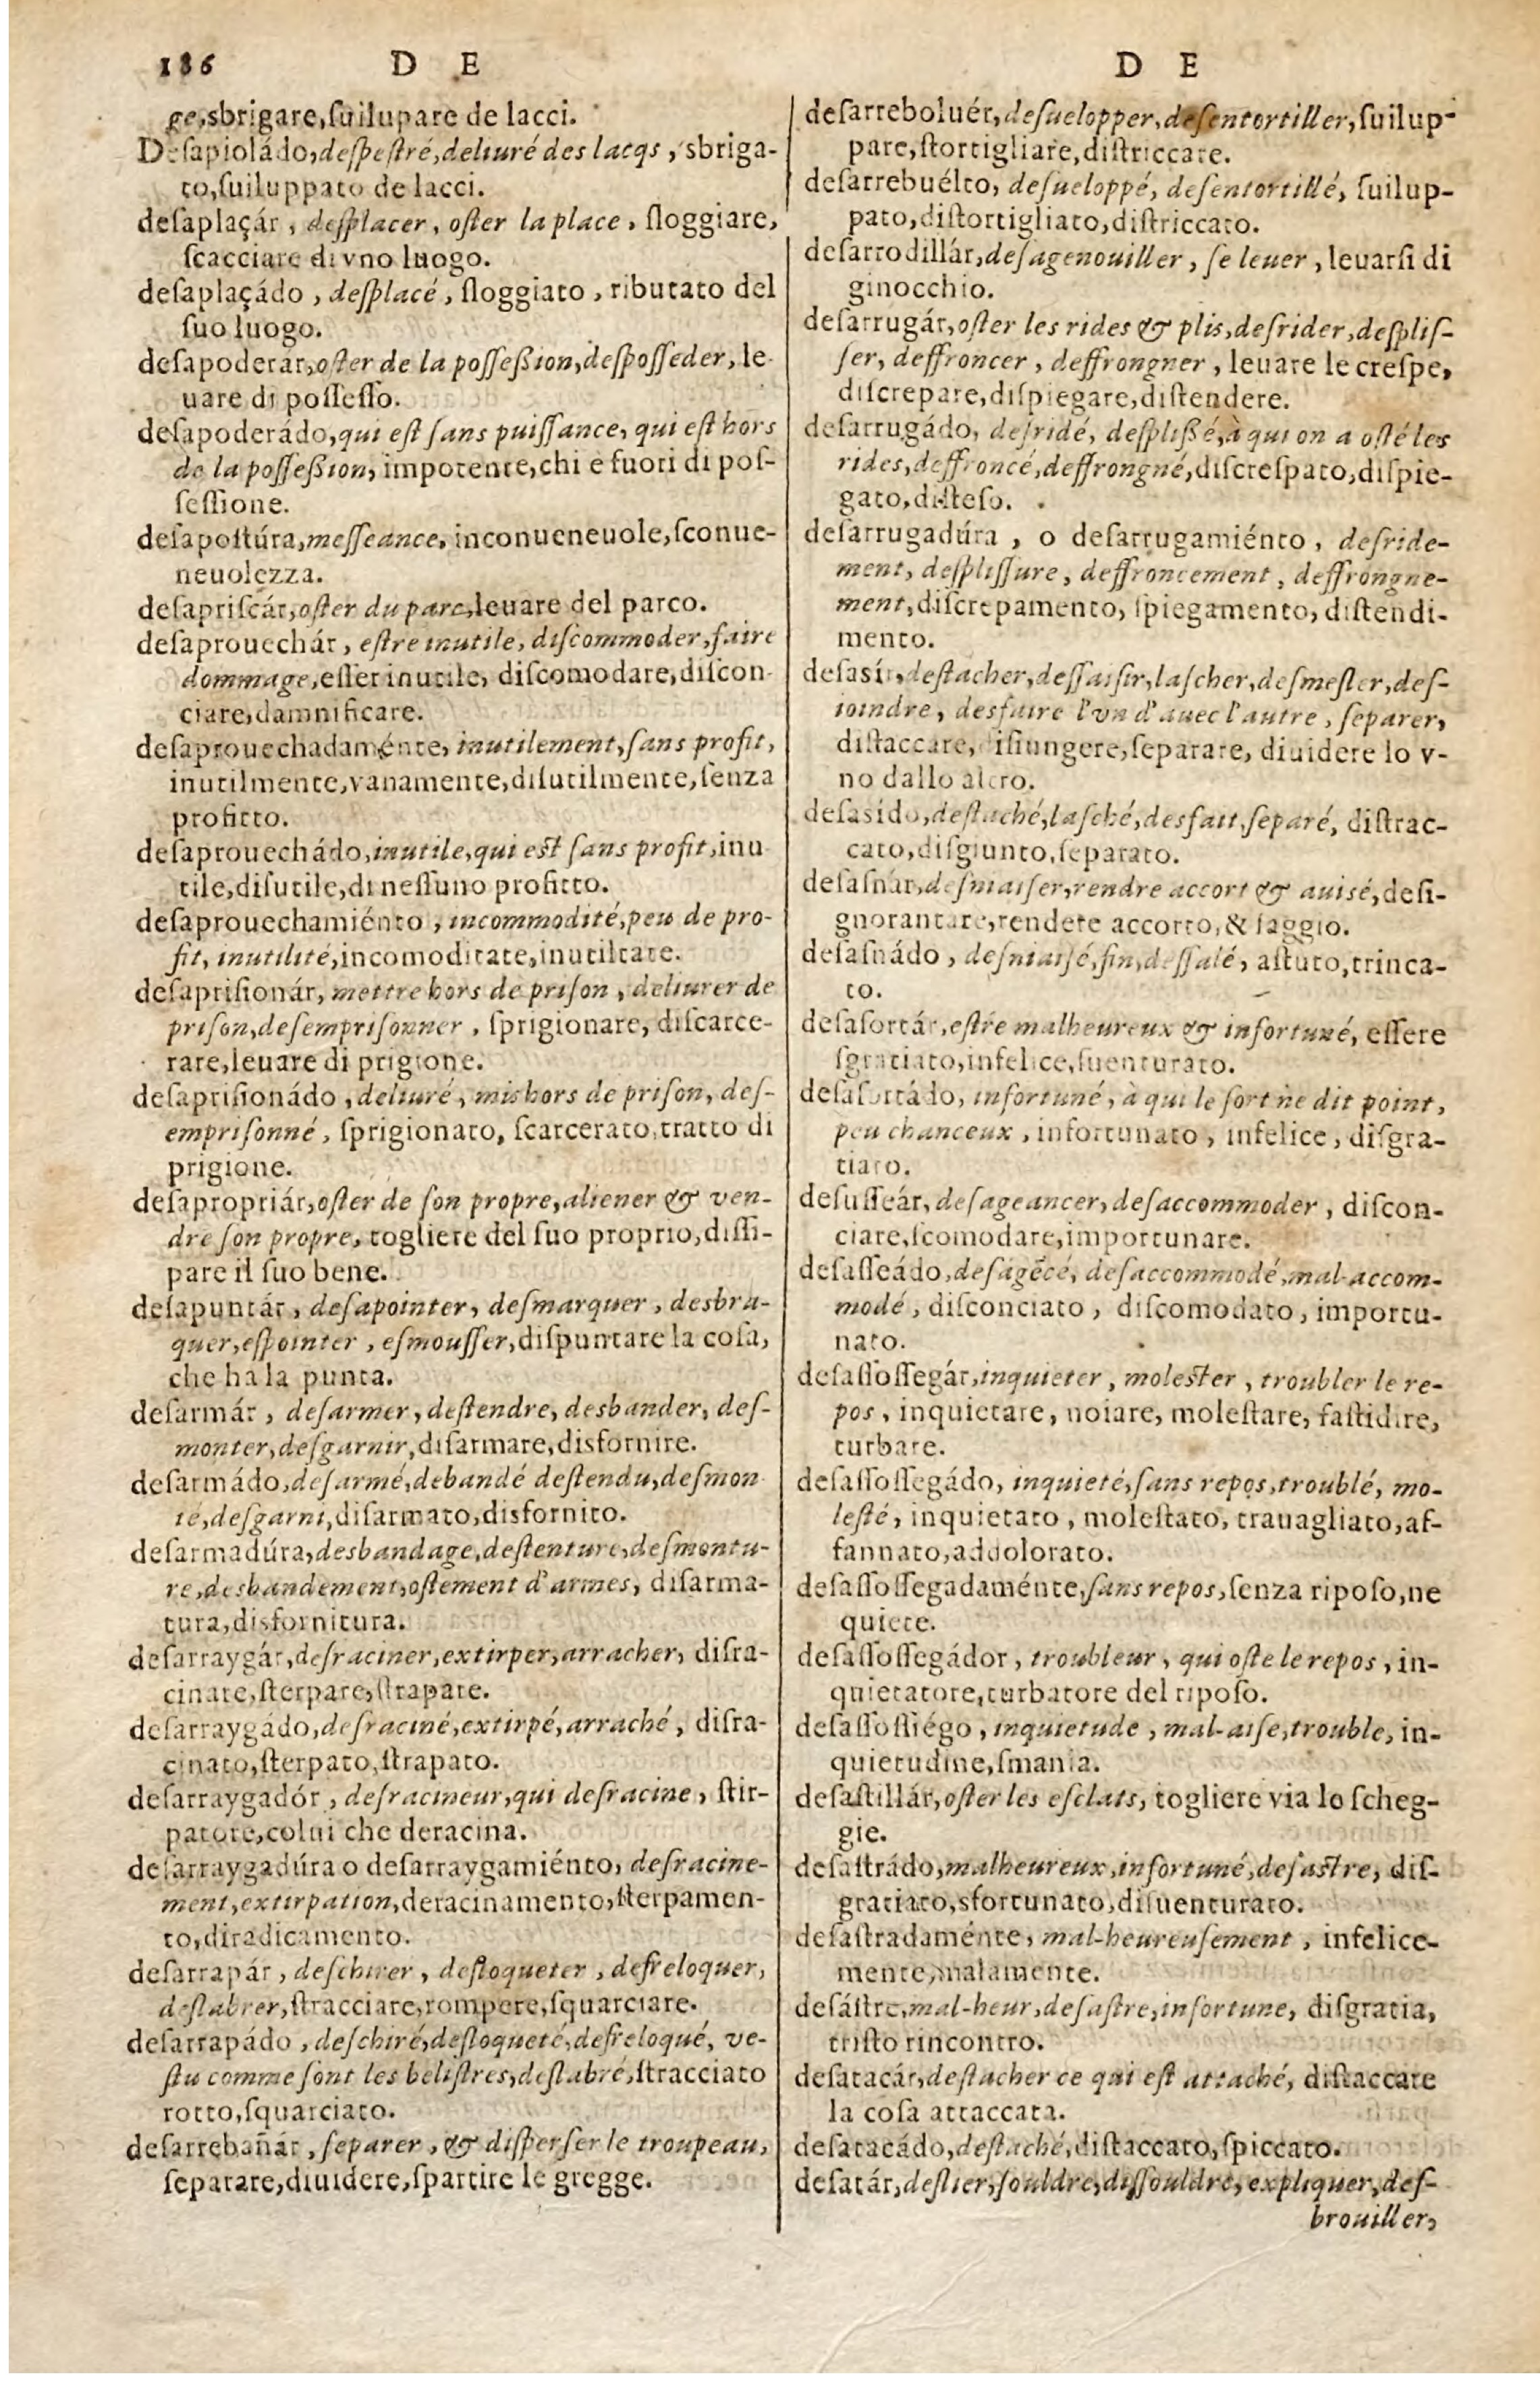 186 D E
ge,sbrigare,ſuilupare de lacci.
Deſapioládo,deſpeſtré,deliuré des lacqs, sbriga-
to,ſuiluppato de lacci.
deſaplaçár, deſplacer, oſter la place, ſloggiare,
ſcacciare di vno luogo.
deſaplaçádo, deſplacé, ſloggiato, ributato del
ſuo luogo.
deſapoderár,oſter de la poſſeßion,deſpoſſeder, le-
uare di poſſeſſo.
deſapoderádo,qui eſt ſans puiſſance, qui eſt hors
de la poſſeßion, impotente,chi e fuori di poſ-
ſeſſione.
deſapoſtúra,meſſeance, inconueneuole,ſconue-
neuolezza.
deſapriſcár,oſter du parc,leuare del parco.
deſaprouechár, eſtre inutile, diſcommoder,faire
dommage,eſſer inutile, diſcomodare,diſcon-
ciare,damnificare.
deſaprouechadaménte, inutilement,ſans profit,
inutilmente,vanamente,diſutilmente,ſenza
profitto.
deſaprouechádo,inutile,qui eſt ſans profit,inu
tile,diſutile,di neſſuno profitto.
deſaprouechamiénto, incommodité,peu de pro-
fit, inutilité,incomoditate,inutiltate.
deſapriſionár, mettre hors de priſon, deliurer de
priſon,deſempriſonner, ſprigionare, diſcarce-
rare,leuare di prigione.
deſapriſionádo, deliuré, mis hors de priſon, deſ-
empriſonné, ſprigionato, ſcarcerato,tratto di
prigione.
deſapropriár,oſter de ſon propre,aliener & ven-
dre ſon propre, togliere del ſuo proprio,diſſi-
pare il ſuo bene.
deſapuntár, deſapointer, deſmarquer, desbra-
quer,eſpointer, eſmouſſer,diſpuntare la coſa,
che ha la punta.
deſarmár, deſarmer, deſtendre, desbander, deſ-
monter,deſgarnir,diſarmare,disfornire.
deſarmádo,deſarmé,debandé deſtendu,deſmon
té,deſgarni,diſarmato,disfornito.
deſarmadúra,desbandage,deſtenture,deſmontu-
re,desbandement,oſtement d'armes, diſarma-
tura,disfornitura.
deſarraygár,deſraciner,extirper,arracher, diſra-
cinare,ſterpare,ſtrapare.
deſarraygádo,deſraciné,extirpé,arraché, diſra-
cinato,ſterpato,ſtrapato.
deſarraygadór, deſracineur,qui deſracine, ſtir-
patore,colui che deracina.
deſarraygadúra o deſarraygamiénto, deſracine-
ment,extirpation,deracinamento,ſterpamen-
to,diradicamento.
deſarrapár, deſchirer, deſloqueter, defreloquer,
deſlabrer,ſtracciare,rompere,ſquarciare.
deſarrapádo, deſchiré,deſloqueté,defreloqué, ve-
ſtu comme ſont les beliſtres,deſlabré,ſtracciato
rotto,ſquarciato.
deſarrebañár, ſeparer, & diſperſer le troupeau,
ſeparare,diuidere,ſpartire le gregge.
D E
deſarreboluér, deſuelopper, deſentortiller, ſuilup-
pare,ſtortigliare,diſtriccare.
deſarrebuélto, deſueloppé, deſentortillé, ſuilup-
pato,diſtortigliato,diſtriccato.
deſarrodillár,deſagenouiller, ſe leuer, leuarſi di
ginocchio.
deſarrugár,oſter les rides & plis,deſrider,deſpliſ-
ſer, deffroncer, deffrongner, leuare le creſpe,
diſcrepare,diſpiegare,diſtendere.
deſarrugádo, deſridé, deſplißé,à qui on a oſté les
rides,deffroncé,deffrongné,diſcreſpato,diſpie-
gato,diſteſo.
deſarrugadúra, o deſarrugamiénto, deſride-
ment, deſpliſſure, deffroncement, deffrongne-
ment,diſcrepamento, ſpiegamento, diſtendi-
mento.
deſasír,deſtacher,deſſaiſir,laſcher,deſmeſler,deſ-
ioindre, desfaire l'vn d'auec l'autre, ſeparer,
diſtaccare, iſiungere,ſeparare, diuidere lo v-
no dallo altro.
deſasído,deſtaché,laſché,desfait,ſeparé, diſtrac-
cato,diſgiunto,ſeparato.
deſaſnár,deſniaiſer,rendre accort & auisé, deſi-
gnorantare,rendere accorto,& ſaggio.
deſaſnádo, deſniaisé,fin,deſſalé, aſtuto,trinca-
to.
deſaſortár,eſtre malheureux & infortuné, eſſere
ſgratiato,infelice,ſuenturato.
deſaſortádo, infortuné, à qui le ſort ne dit point,
peu chanceux, infortunato, infelice, diſgra-
tiato.
deſuſſeár, deſageancer, deſaccommoder, diſcon-
ciare,ſcomodare,importunare.
deſaſſeádo,deſagēcé, deſaccommodé,mal-accom-
modé, diſconciato, diſcomodato, importu-
nato.
deſaſſoſſegár,inquieter, moleſter, troubler le re-
pos, inquietare, noiare, moleſtare, faſtidire,
turbare.
deſaſſoſſegádo, inquieté,ſans repos,troublé, mo-
leſté, inquietato, moleſtato, trauagliato,af-
fannato,addolorato.
deſaſſoſſegadaménte,ſans repos,ſenza ripoſo,ne
quiete.
deſaſſoſſegádor, troubleur, qui oſte le repos, in-
quietatore,turbatore del ripoſo.
deſaſſoſſiégo, inquietude, mal-aiſe,trouble, in-
quietudine,ſmania.
deſaſtillár,oſter les eſclats, togliere via lo ſcheg-
gie.
deſaſtrádo,malheureux,infortuné,deſaſtre, diſ-
gratiato,sfortunato,diſuenturato.
deſaſtradaménte, mal-heureuſement, infelice-
mente,malamente.
deſáſtre,mal-heur,deſaſtre,infortune, diſgratia,
triſto rincontro.
deſatacár,deſtacher ce qui eſt attaché, diſtaccare
la coſa attaccata.
deſatacádo,deſtaché,diſtaccato,ſpiccato.
deſatár,deſlier,ſouldre,diſſouldre,expliquer,deſ-
brouiller,